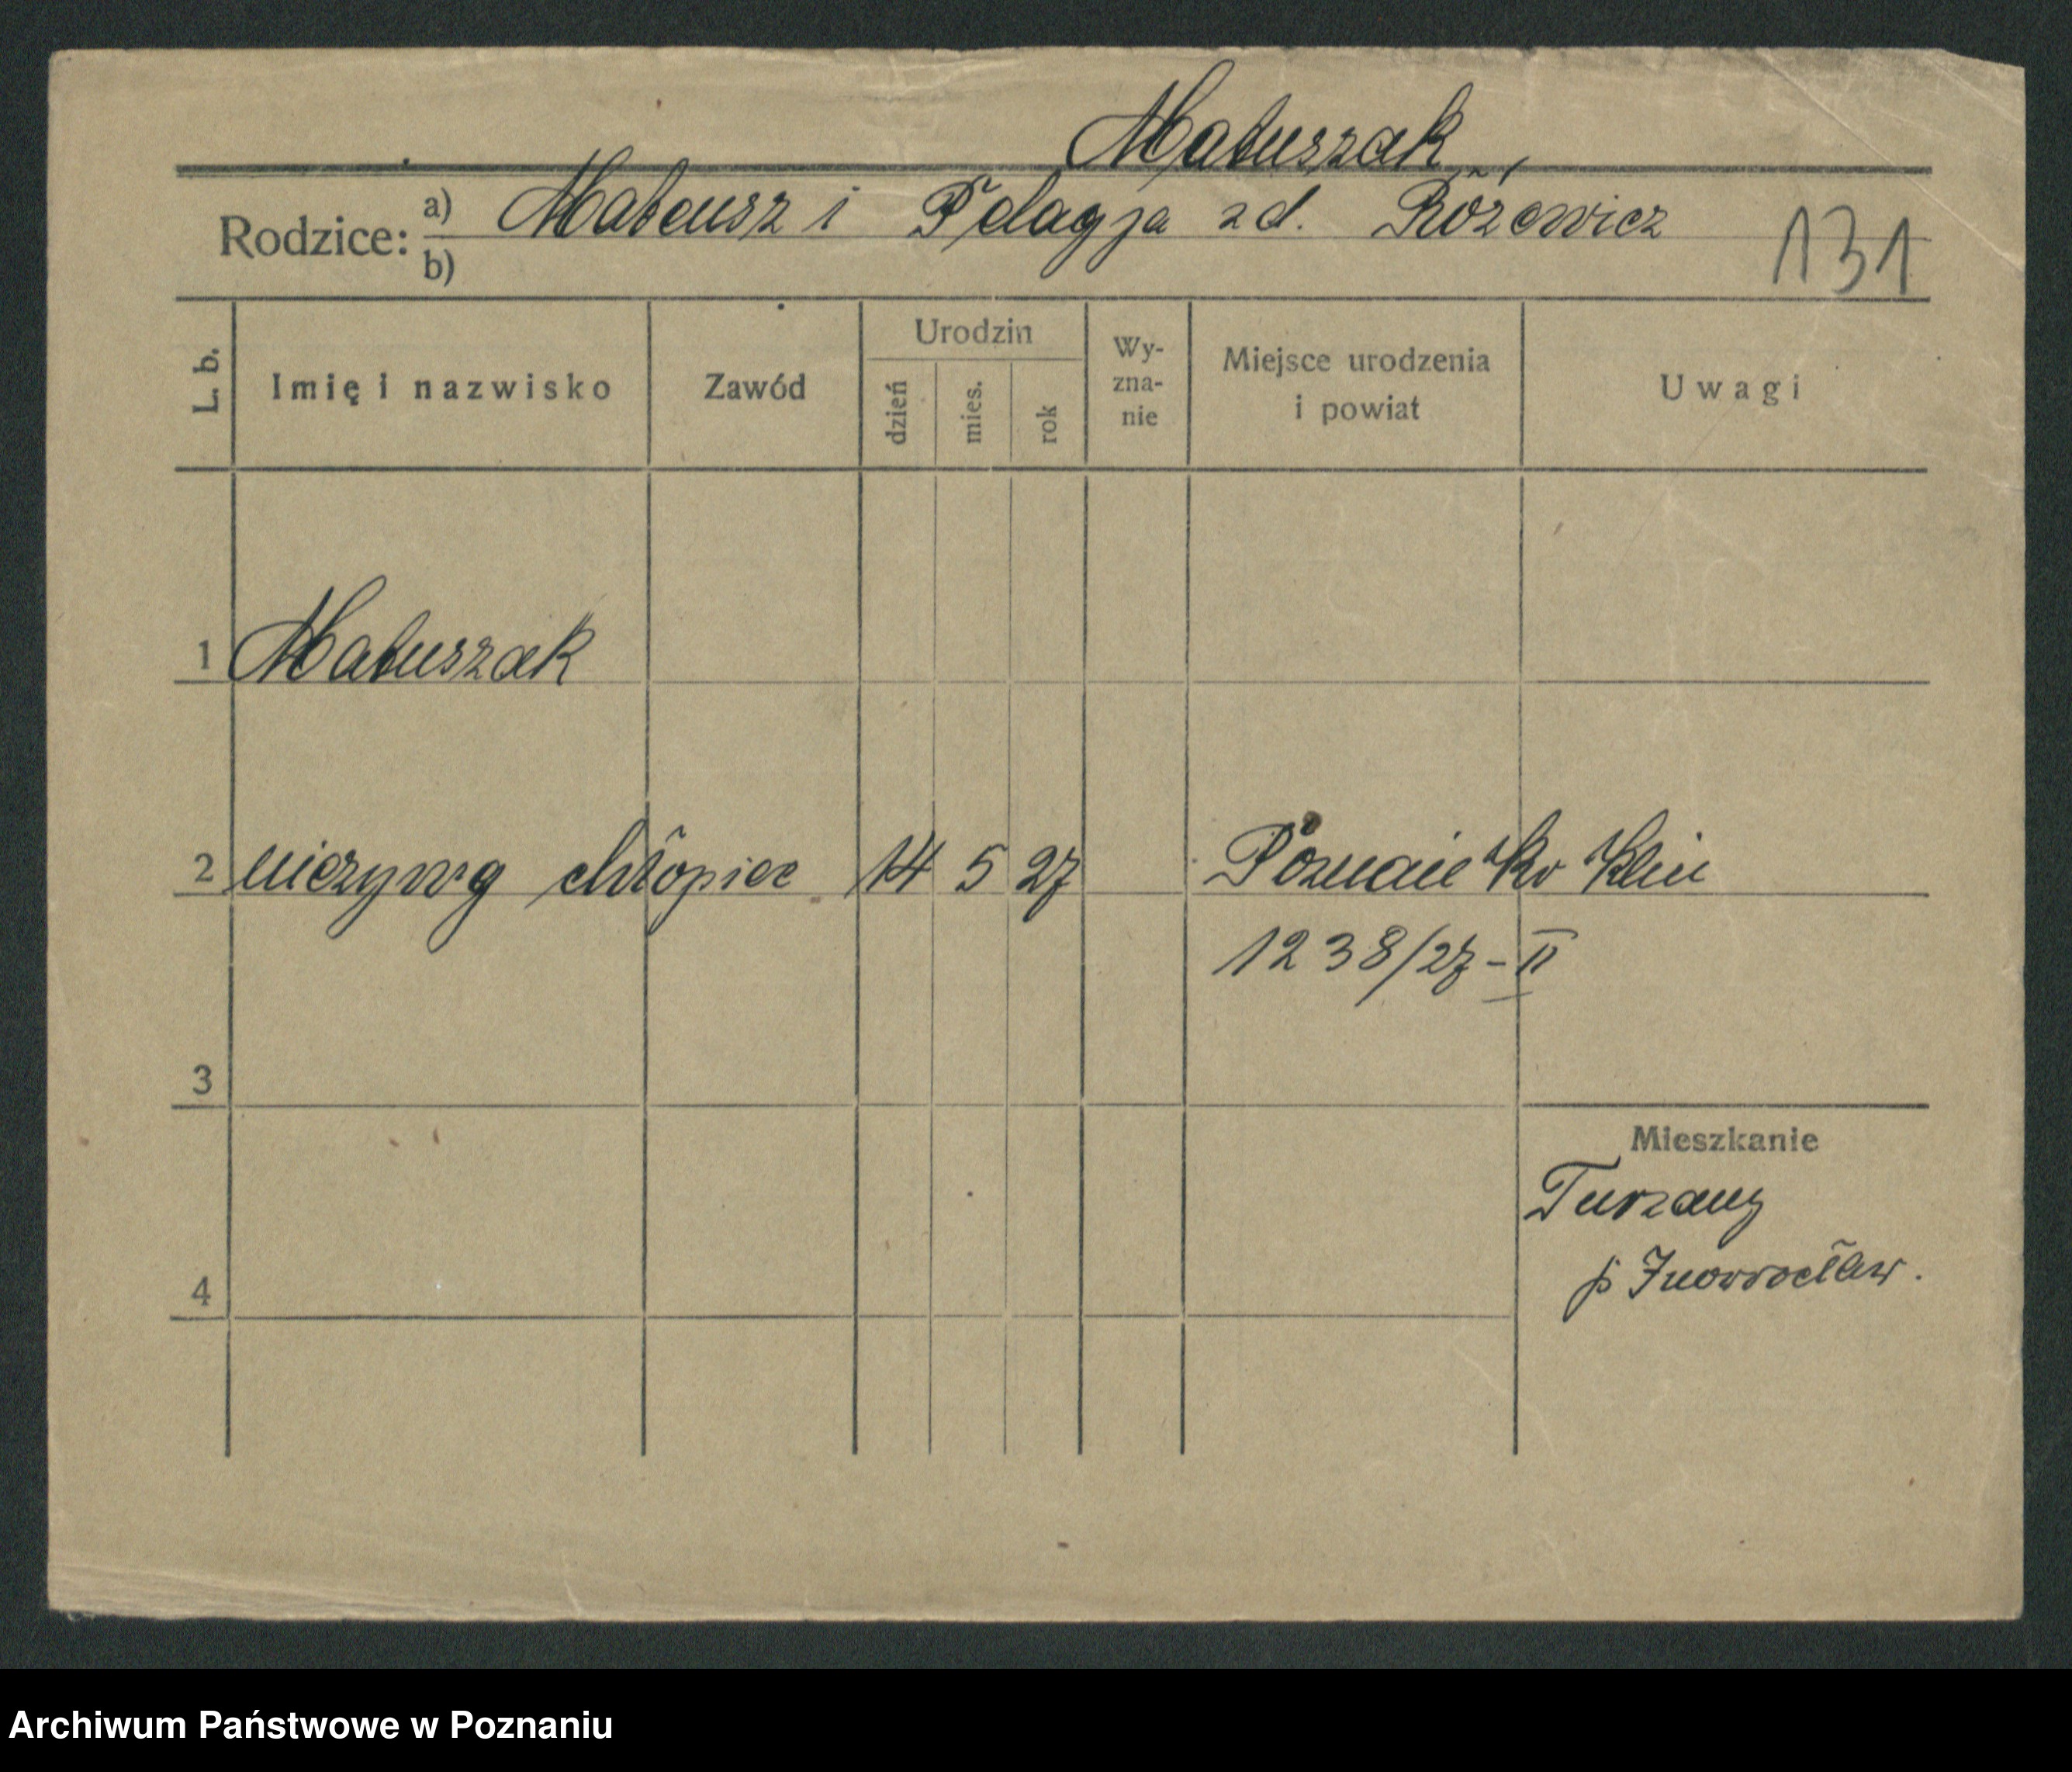 Matuszak
Rodzice: a) Mateusz i Pelagja zd. Różewicz
b)
131
L. b.
Imię i nazwisko
Zawód
Urodzin
dzień
mies.
rok
Wy-
zna-
nie
Miejsce urodzenia
i powiat
Uwagi
1 Matuszak
2 nieżywy chłopiec 14 5 27 Poznań Kr Klin
1238/27-II
3
4
Mieszkanie
Turzany
p Inowrocław.
Archiwum Państwowe w Poznaniu